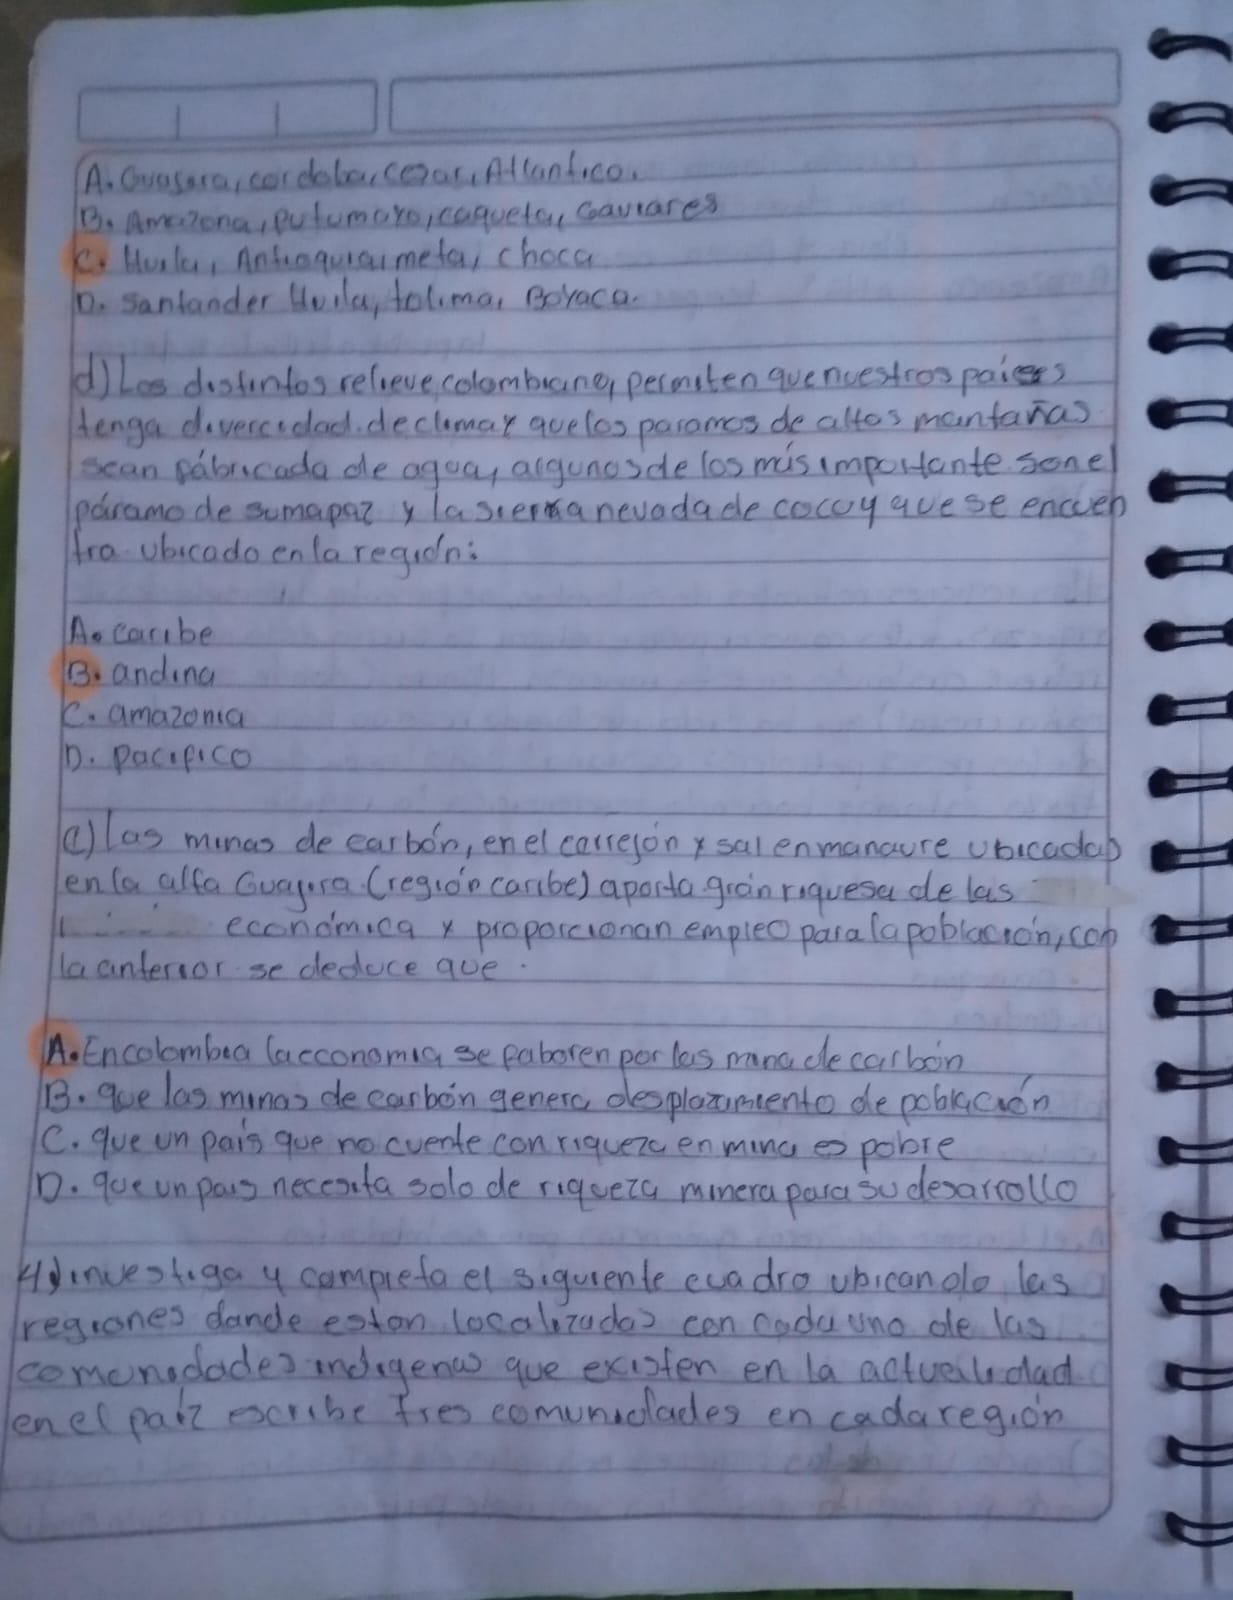 A. Guasara, cordoba, cesar, Atlantico.
B. Amazona, putumayo, caqueta, Gaviares
C. Huila, Antioquia, meta, choca
D. Santander Huila, tolima, Boyaca.
d) Los distintos relieve colombiano, permiten que nuestros paises
tenga divercidad de clima y que los paramos de altas mantañas
sean fábricada de agua, algunos de los mas importante son el
páramo de sumapaz y la sierra nevada de cocuy que se encuen
tra ubicado en la región:
A. caribe
B. andina
C. amazonia
D. pacifico
e) las minas de carbón, en el carrejón y sal en manaure ubicadas
en la alta Guajira (región caribe) aporta gran riquesa de las
económica y proporcionan empleo para la población, con
la anterior se deduce que.
A. En colombia la economia se faboren por las mina de carbón
B. que las minas de carbón genera desplazamiento de población
C. que un país que no cuente con riqueza en mina es pobre
D. que un pais necesita solo de riqueza minera para su desarrollo
4) investiga y completa el siguiente cuadro ubicando las
regiones dande estan localizadas con cada uno de las
comonidades indigenas que existen en la actualidad
en el paiz escribe tres comunidades en cada región